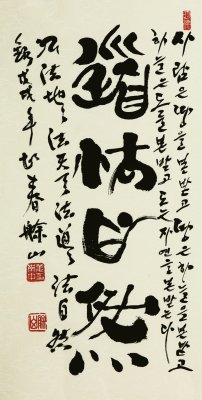 사람은 땅을 본받고 땅은 하늘을 본받고
하늘은 도를 본받고 도는 자연을 본받는다
道法自然
人法地〻法天〻法道〻法自然
戊戌年 春 山